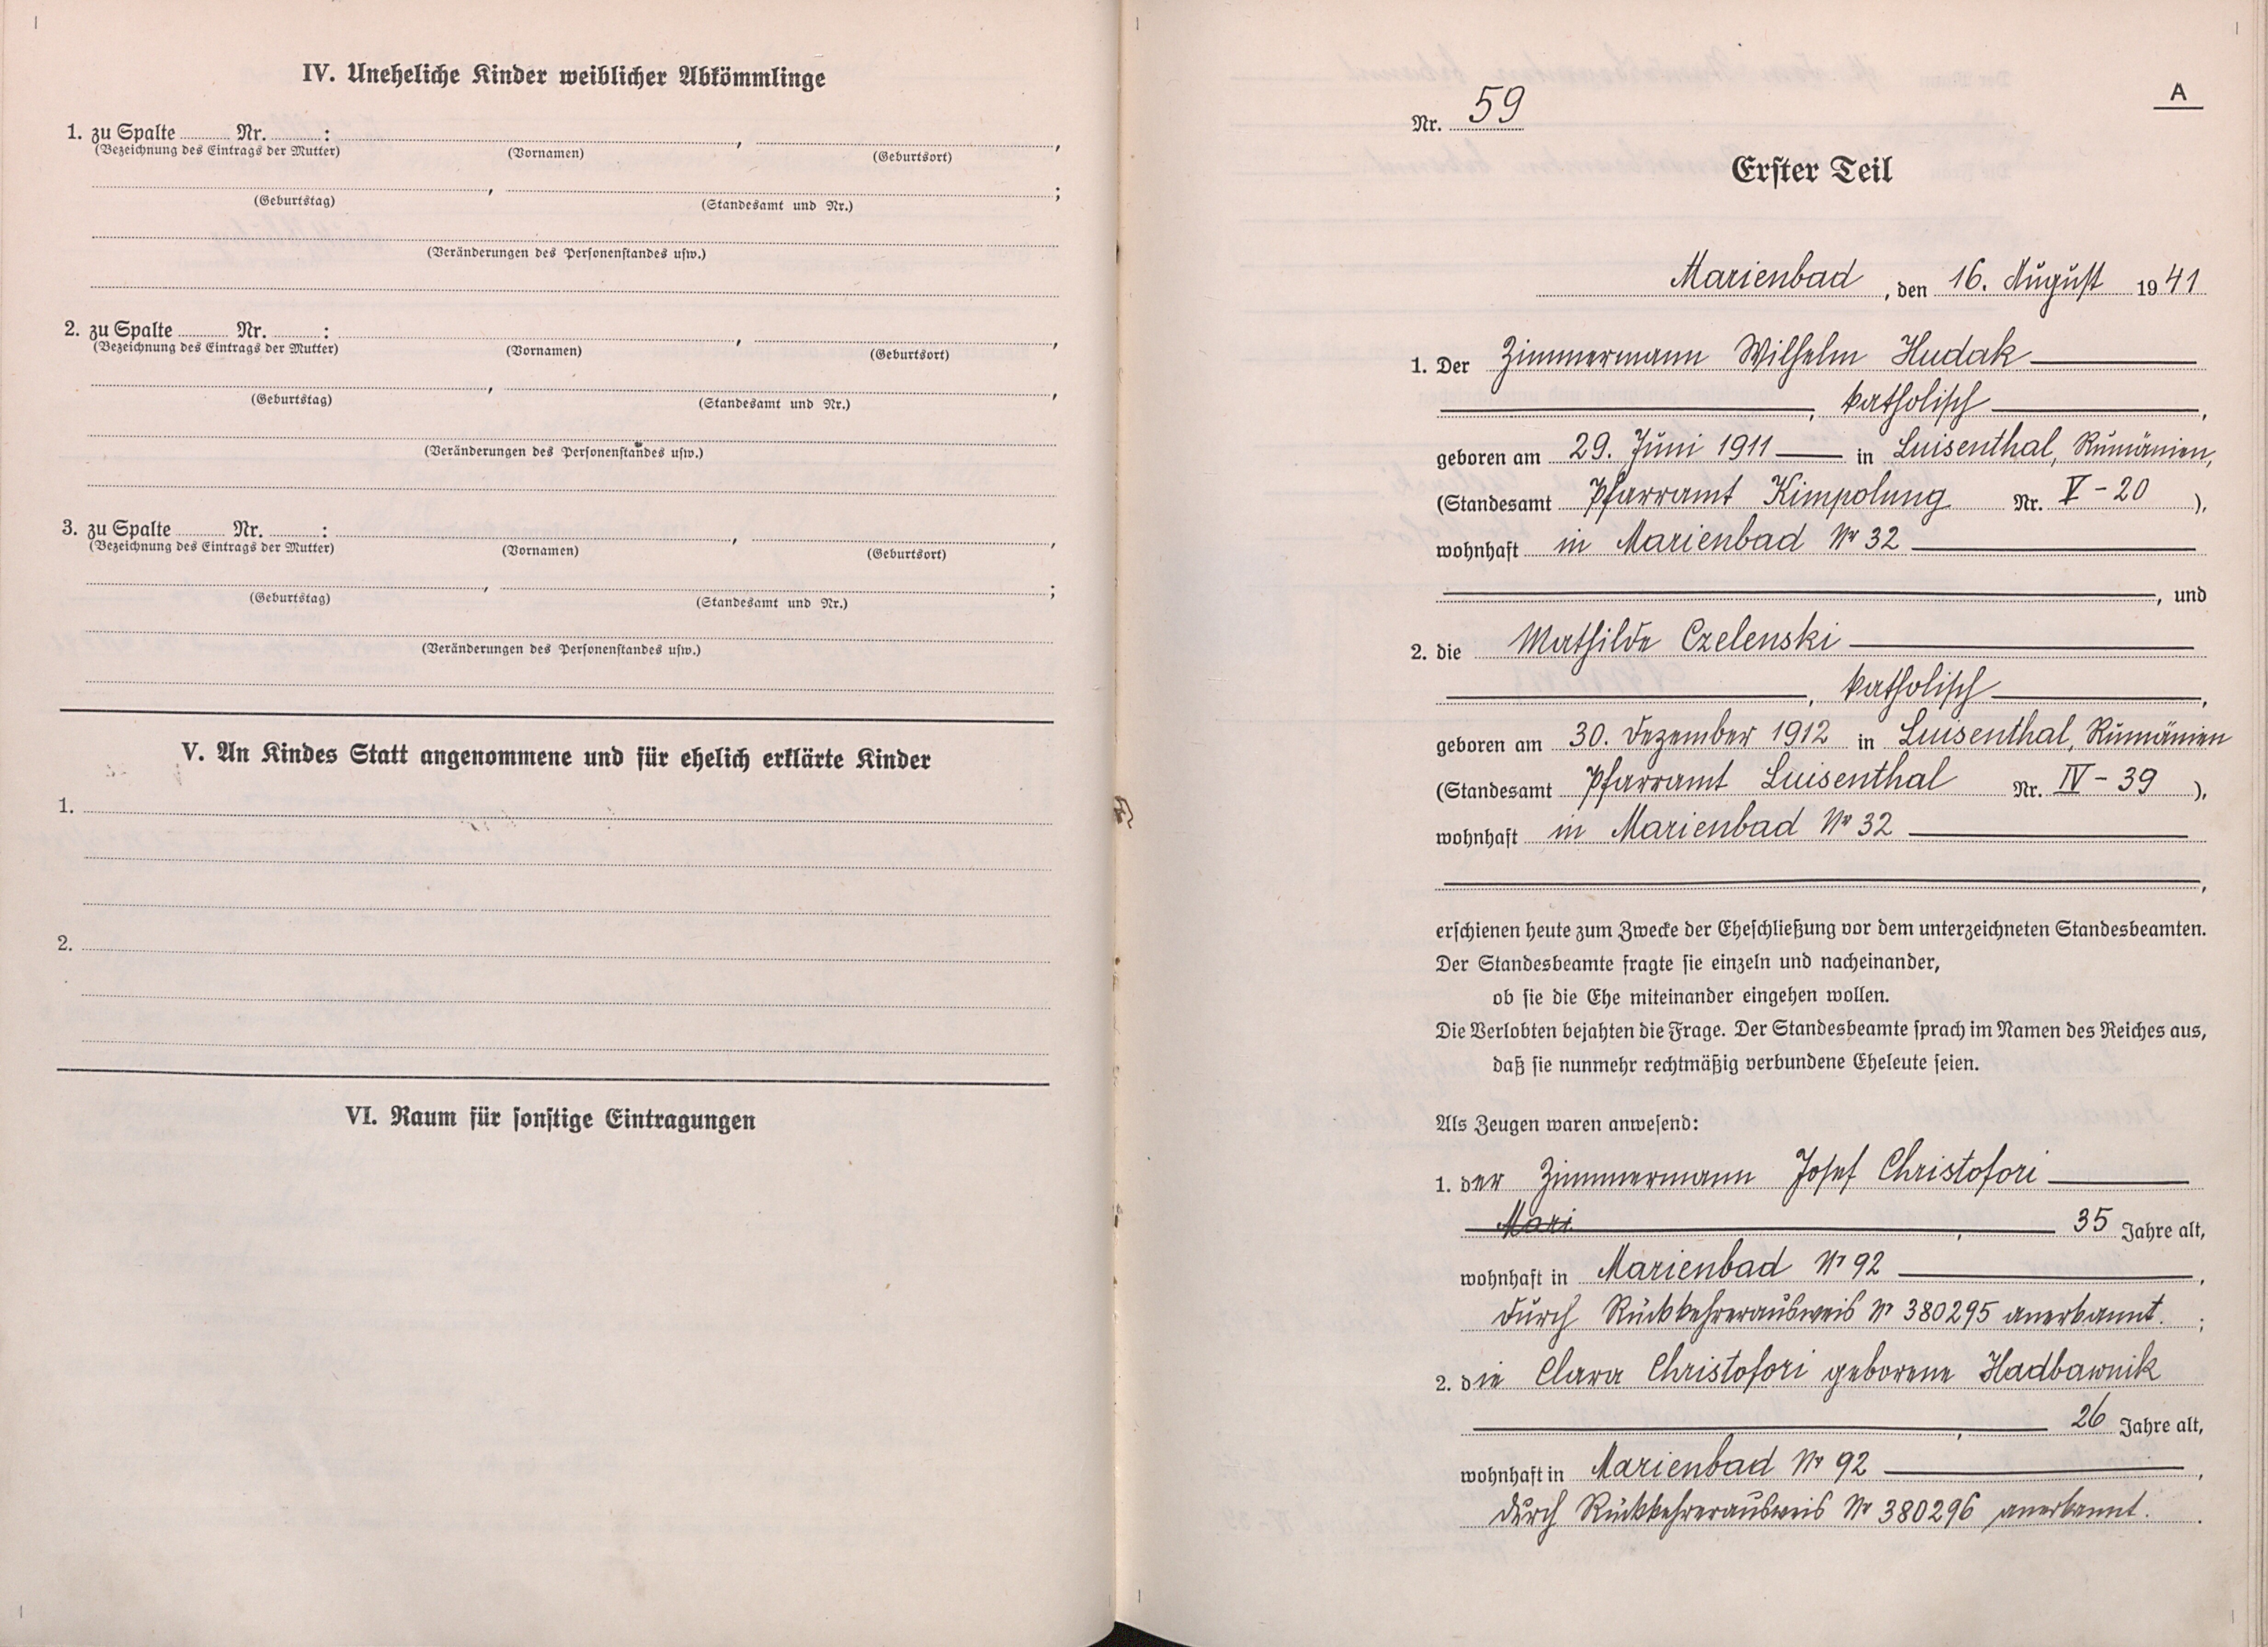 IV. Uneheliche Kinder weiblicher Abkömmlinge
1. zu Spalte Nr. : , ,
(Bezeichnung des Eintrags der Mutter) (Vornamen) (Geburtsort)
, ;
(Geburtstag) (Standesamt und Nr.)
(Veränderungen des Personenstandes usw.)
2. zu Spalte Nr. : , ,
(Bezeichnung des Eintrags der Mutter) (Vornamen) (Geburtsort)
, ,
(Geburtstag) (Standesamt und Nr.)
(Veränderungen des Personenstandes usw.)
3. zu Spalte Nr. : , ,
(Bezeichnung des Eintrags der Mutter) (Vornamen) (Geburtsort)
, ;
(Geburtstag) (Standesamt und Nr.)
(Veränderungen des Personenstandes usw.)
V. An Kindes Statt angenommene und für ehelich erklärte Kinder
1.
2.
VI. Raum für sonstige Eintragungen
A
Nr. 59
Erster Teil
Marienbad, den 16. August 1941
1. Der Zimmermann Wilhelm Hudak
, katholisch,
geboren am 29. Juni 1911 in Luisenthal, Rumänien,
(Standesamt Pfarramt Kimpolung Nr. V - 20 ),
wohnhaft in Marienbad Nr 32
, und
2. die Mathilde Czelenski
, katholisch,
geboren am 30. Dezember 1912 in Luisenthal, Rumänien
(Standesamt Pfarramt Luisenthal Nr. IV - 39 ),
wohnhaft in Marienbad Nr 32
,
erschienen heute zum Zwecke der Eheschließung vor dem unterzeichneten Standesbeamten.
Der Standesbeamte fragte sie einzeln und nacheinander,
ob sie die Ehe miteinander eingehen wollen.
Die Verlobten bejahten die Frage. Der Standesbeamte sprach im Namen des Reiches aus,
daß sie nunmehr rechtmäßig verbundene Eheleute seien.
Als Zeugen waren anwesend:
1. der Zimmermann Josef Christofori
Mari , 35 Jahre alt,
wohnhaft in Marienbad Nr 92 ,
durch Rückkehrerausweis Nr 380295 anerkannt. ;
2. die Clara Christofori geborene Hadbawnik
, 26 Jahre alt,
wohnhaft in Marienbad Nr 92 ,
durch Rückkehrerausweis Nr 380296 anerkannt. .